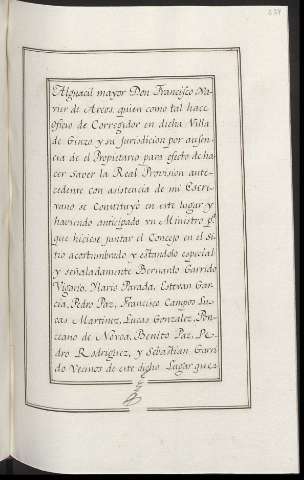 Alguacil mayor Don Francisco Xa
vier de Arcos, quien como tal hace
oficio de Corregidor en dicha Villa
de Ginzo, y su jurisdicion por ausen
cia de el Propietario para efecto de ha
cer saver la Real Provision ante
cedente con asistencia de mi Escri
vano se Constituyó en este lugar y
haviendo anticipado un Ministro pª
que hiciese juntar el Concejo en el si
tio acostumbrado y estandolo especial
y señaladamente Bernardo Garrido
Vigario, Mario Parada, Estevan Gar
cia, Pedro Paz, Francisco Campos Lu
cas Martinez, Lucas Gonzalez, Pon
ceano de Nóvoa, Benito Paz, Pe
dro Rodriguez, y Sebastian Garri
do Vecinos de este dicho Lugar que a